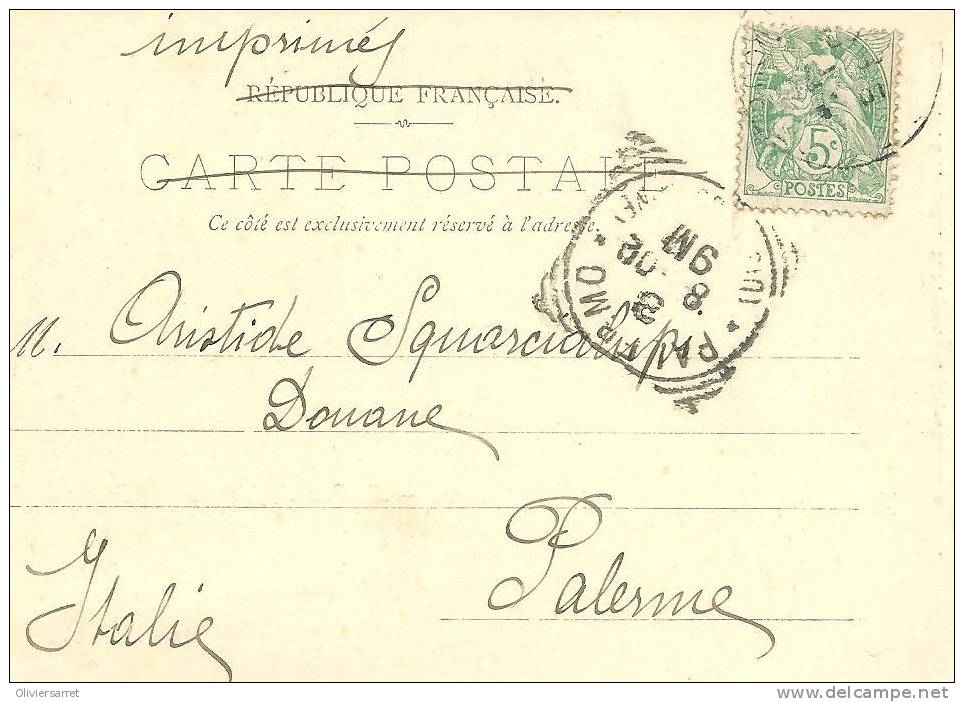 imprimés
RÉPUBLIQUE FRANÇAISE.
CARTE POSTALE
Ce côté est exclusivement réservé à l'adresse.
5c
POSTES
PALERMO
8
9M
M. Aristide Squarcialupi
Douane
Palerme
Italie
Oliviersarret
www.delcampe.net